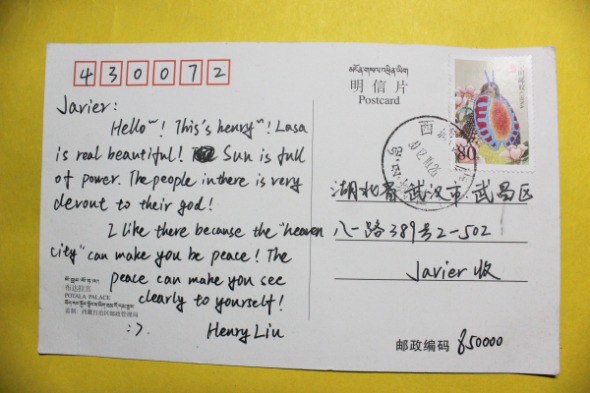 430072
Javier:
Hello~! This's henry~! Lasa
is real beautiful! Sun is full
of power. The people in there is very
devout to their god!
I like there because the "heaven
city" can make you be peace! The
peace can make you see
clearly to yourself!
:>. Henry Liu
布达拉宫
POTALA PALACE
明信片
Postcard
80
西
湖北省武汉市武昌区
八一路389号2-502
Javier 收
邮政编码 850000